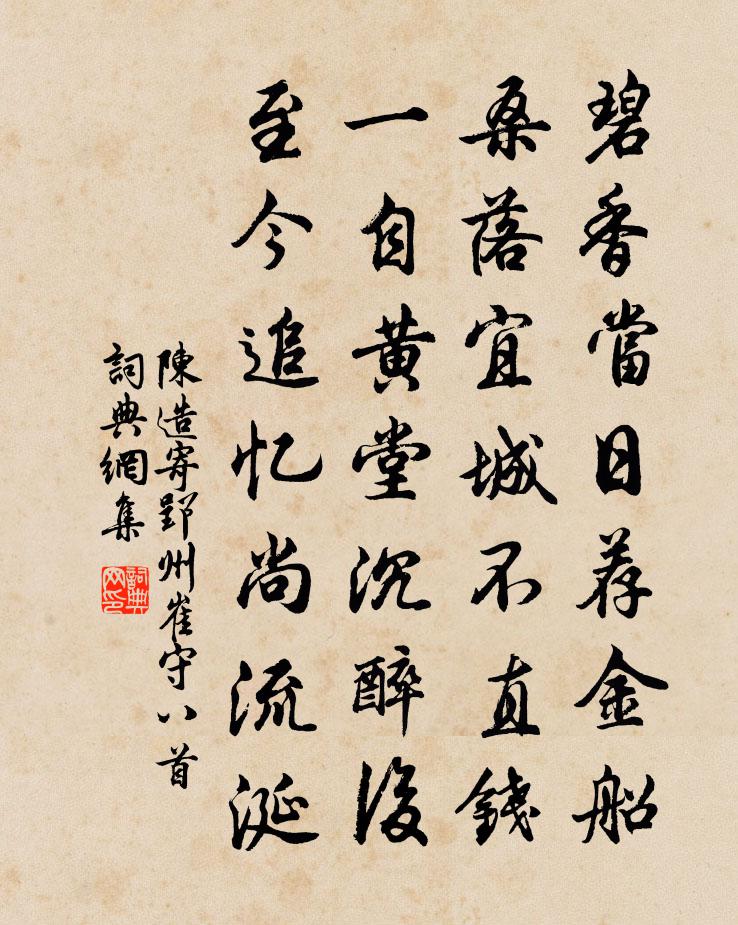 碧香當日荐金船
桑落宜城不直錢
一自黄堂沉醉後
至今追忆尚流涎
陳造寄郢州崔守八首
詞典網集
詞典网印